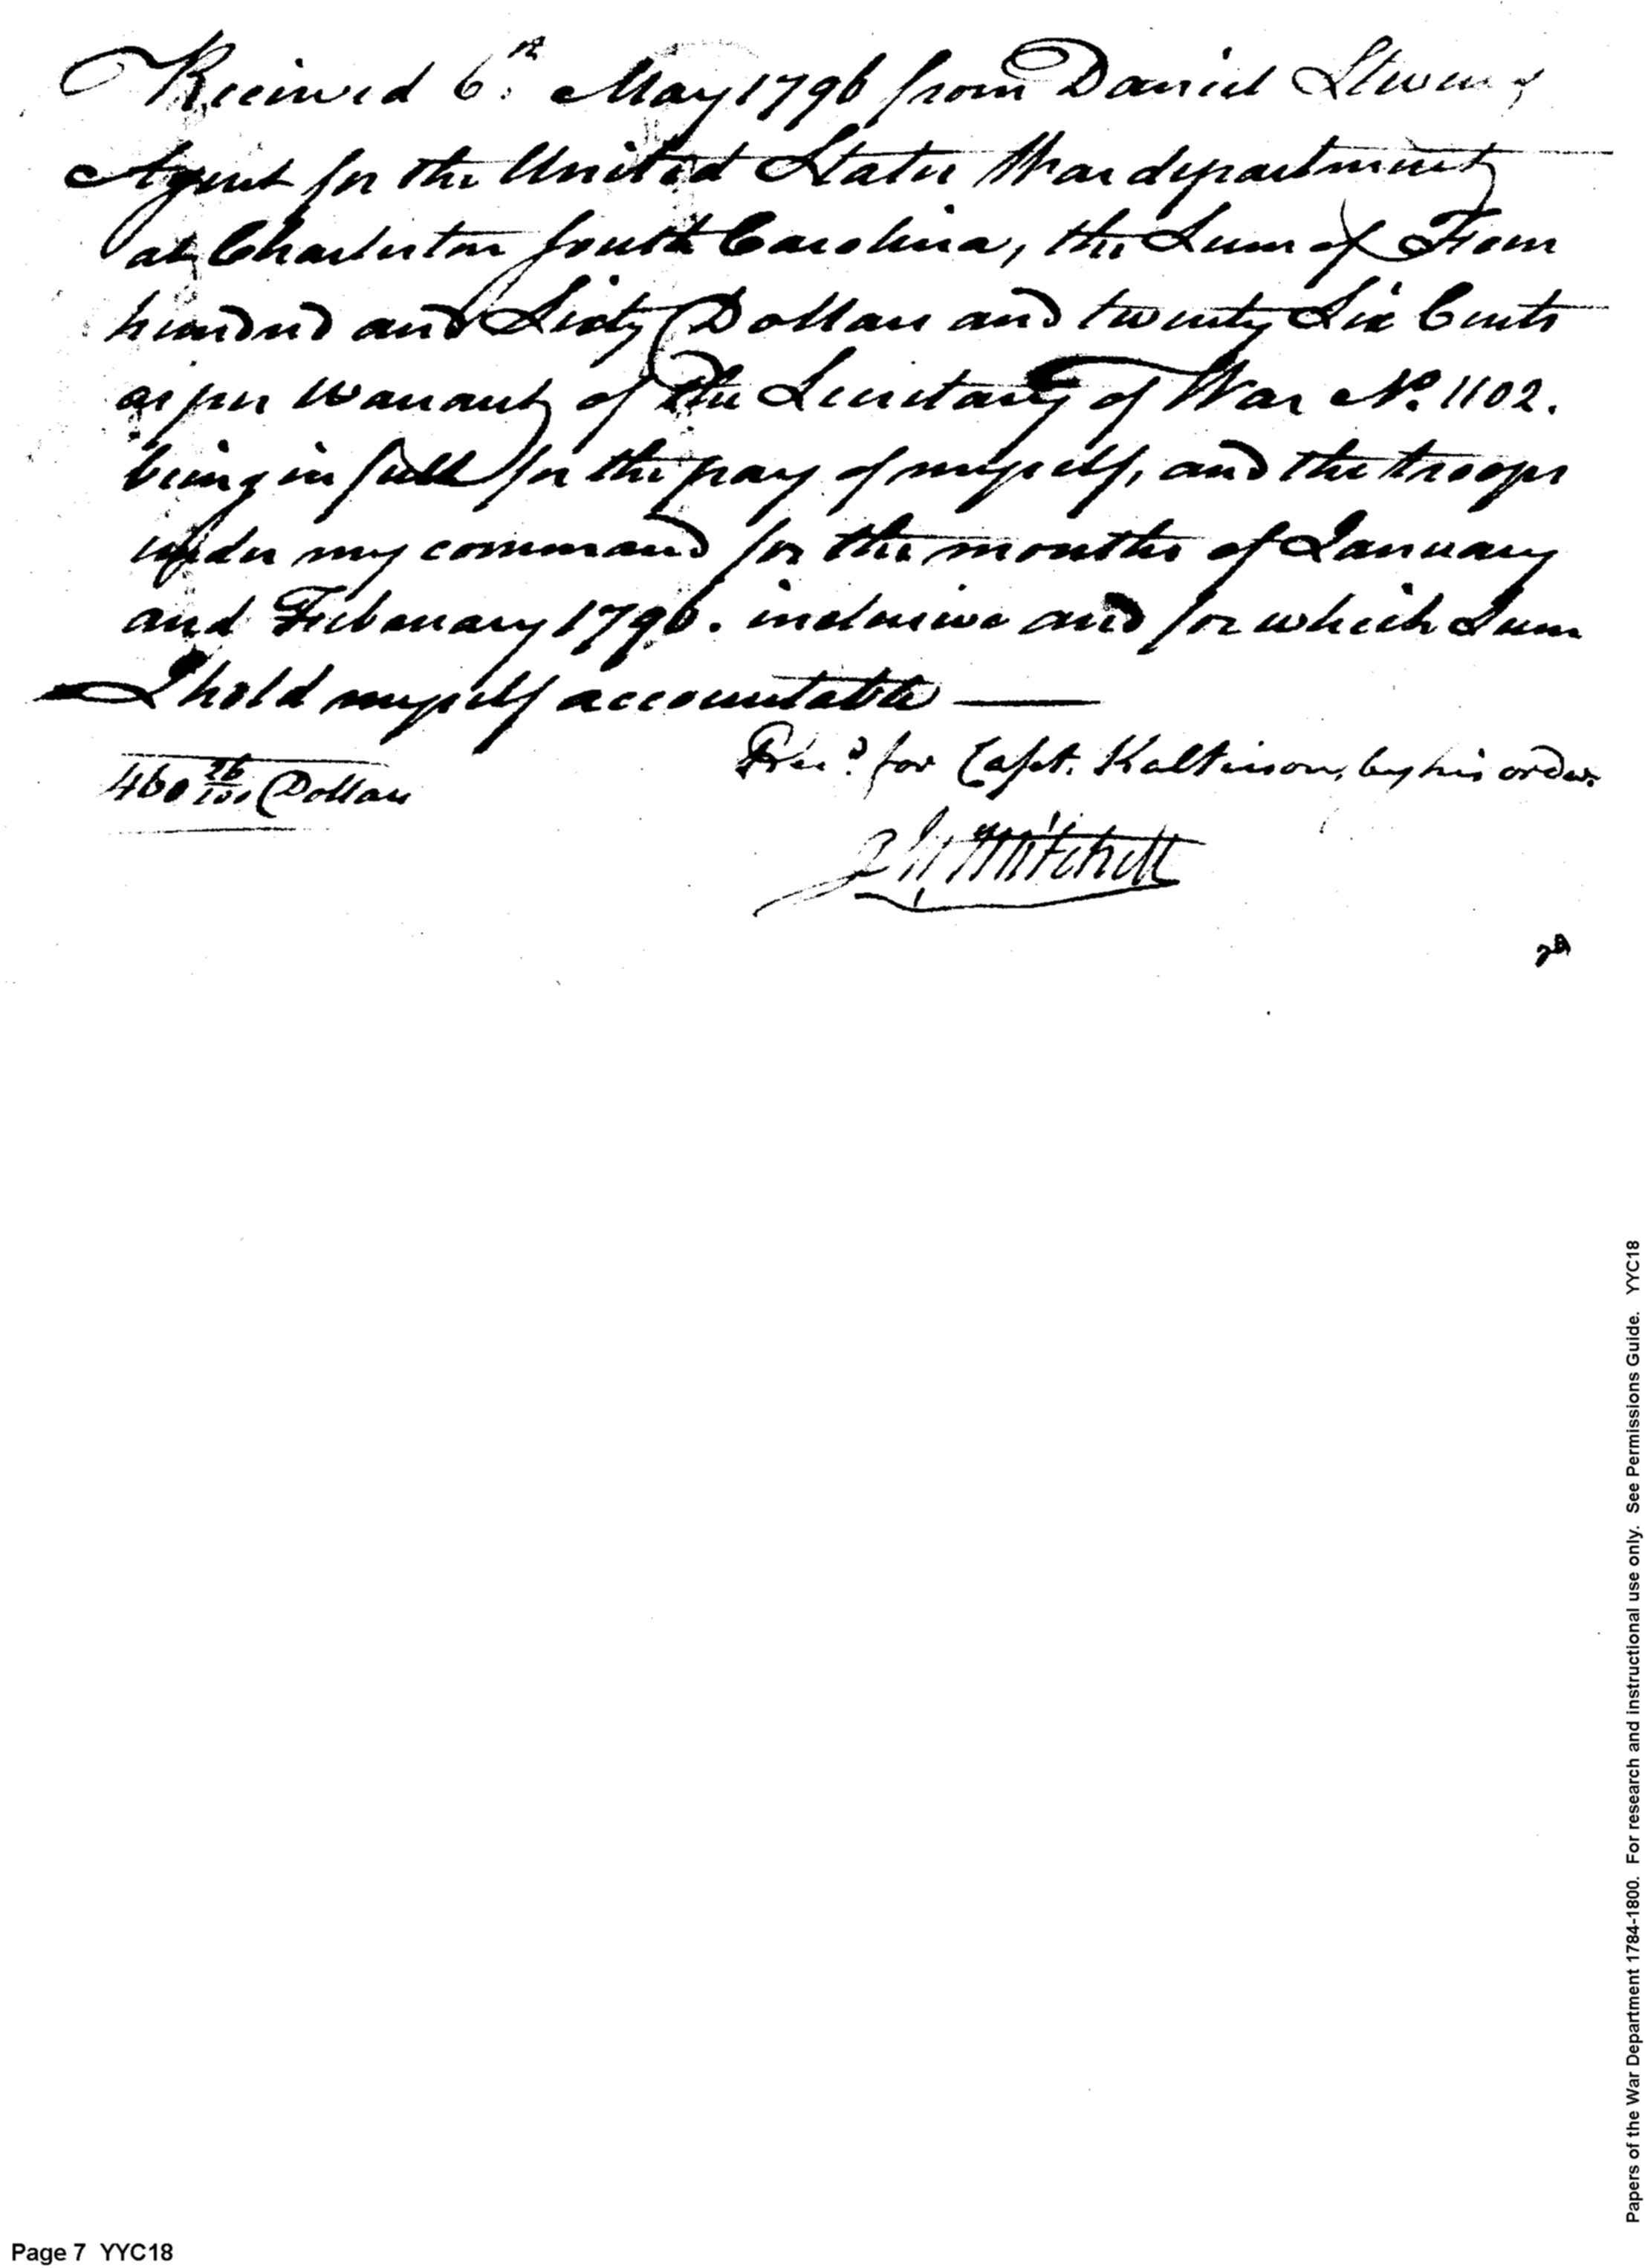 Received 6th May 1796 from Daniel Stevens
Agent for the United States War department
at Charleston South Carolina, the Sum of Four
hundred and Sixty Dollars and twenty Six Cents
as per warrant of the Secretary of War No. 1102.
being in full for the pay of myself, and the troops
under my command for the months of January
and Feebruary 1796. inclusive and for which Sum
I hold myself accountable —
460 26/100 Dollars
Rec.d for Capt. Kalteison, by his order
Mitchell
Papers of the War Department 1784-1800. For research and instructional use only. See Permissions Guide. YYC18
Page 7 YYC18